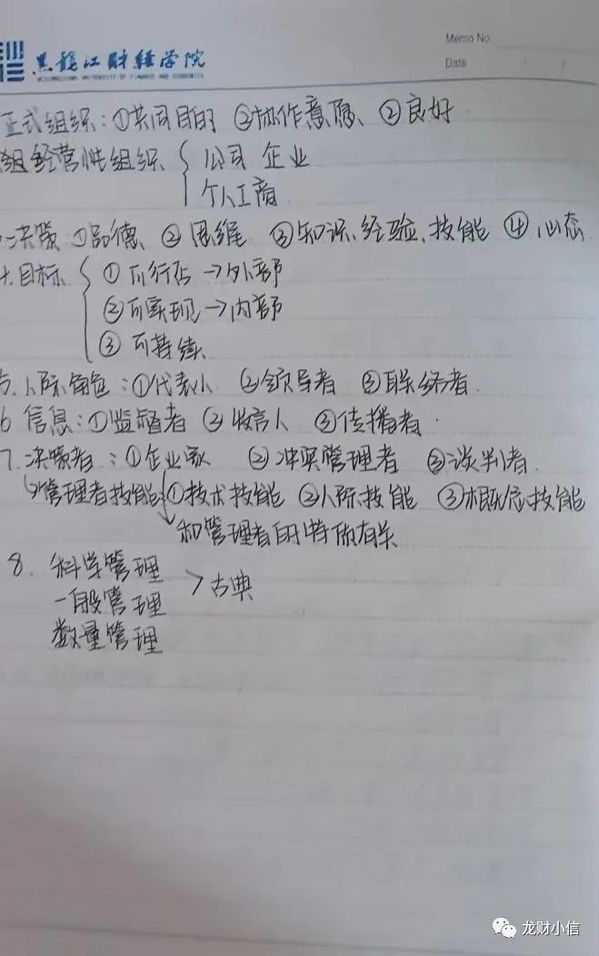 黑龙江财经学院
HEILONGJIANG UNIVERSITY OF FINANCE AND ECONOMICS
Memo No
Date / /
正式组织：①共同目的 ②协作意愿、②良好
组经营性组织 { 公司 企业
个人工商
决策 ①品德、② 思维 ③知识、经验、技能 ④ 心态
目标 { ① 可行店 → 外部
②可实现 → 内部
③ 可持续
5、人际角色：①代表人 ②领导者 ③联络者
6 信息：①监督者 ② 发言人 ③传播者
7、决策者：①企业家 ② 冲突管理者 ③谈判者
管理者技能 ①技术技能 ②人际技能 ③概念技能
和管理者的特质有关
8. 科学管理
一般管理 > 古典
数量管理
龙财小信